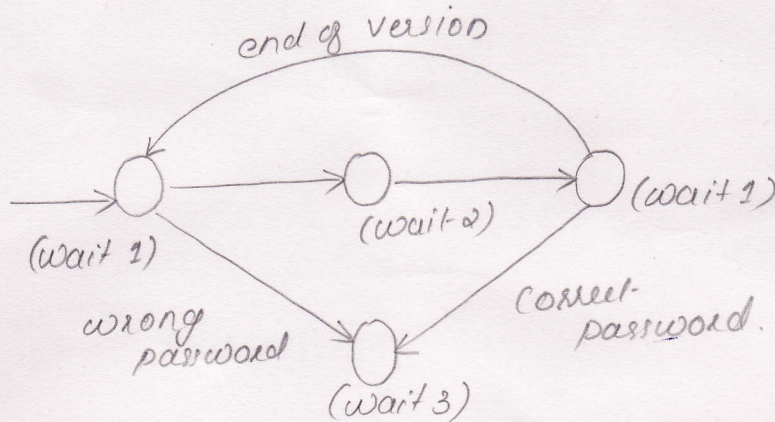 end of version
(wait 1)
(wait 2)
(wait 1)
wrong
password
correct
password.
(wait 3)